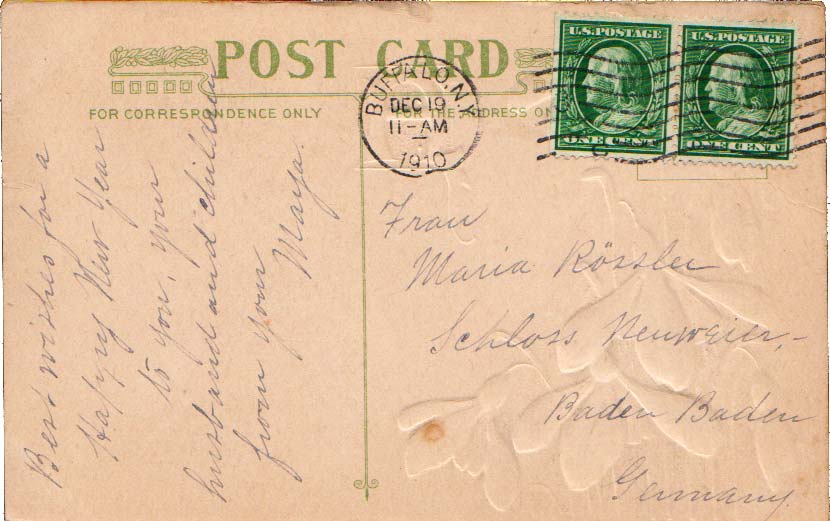 POST CARD
FOR CORRESPONDENCE ONLY
FOR THE ADDRESS ON
BUFFALO, N.Y.
DEC 19
11-AM
1910
U.S. POSTAGE
ONE CENT
U.S. POSTAGE
ONE CENT
Best wishes for a
Happy New Year
to you, your
husband and children
from your
Marya.
Frau
Maria Rössler
Schloss Neuweier,-
Baden Baden
Germany.